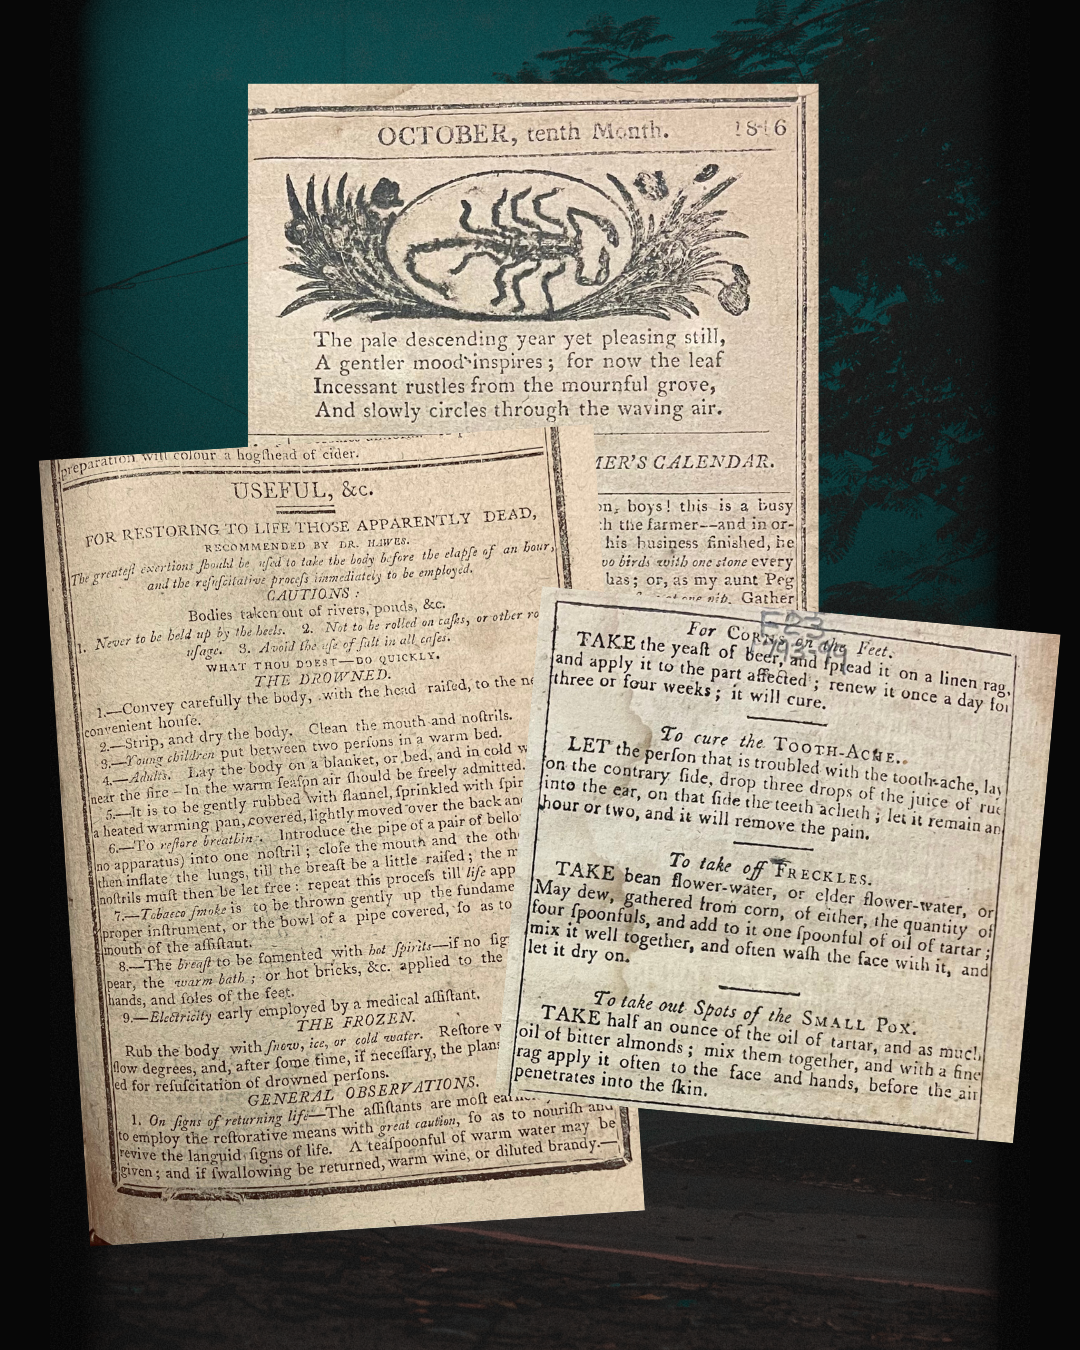 OCTOBER, tenth Month. 1816
The pale descending year yet pleasing still,
A gentler mood inspires; for now the leaf
Incessant rustles from the mournful grove,
And slowly circles through the waving air.
MER'S CALENDAR.
on, boys! this is a busy
h the farmer--and in or-
his business finished, he
wo birds with one stone every
has; or, as my aunt Peg
at one nib. Gather
preparation will colour a hogſhead of cider.
USEFUL, &c.
FOR RESTORING TO LIFE THOSE APPARENTLY DEAD,
RECOMMENDED BY DR. HAWES.
The greateſt exertions ſhould be uſed to take the body before the elapſe of an hour,
and the reſuſcitative proceſs immediately to be employed.
CAUTIONS:
Bodies taken out of rivers, ponds, &c.
1. Never to be held up by the heels. 2. Not to be rolled on caſks, or other ro
uſage. 3. Avoid the uſe of ſalt in all caſes.
WHAT THOU DOEST—DO QUICKLY.
THE DROWNED.
1.—Convey carefully the body, with the head raiſed, to the ne
convenient houſe.
2.—Strip, and dry the body. Clean the mouth and noſtrils.
3.—Young children put between two perſons in a warm bed.
4.—Adults. Lay the body on a blanket, or bed, and in cold w
near the fire – In the warm ſeaſon air ſhould be freely admitted.
5.—It is to be gently rubbed with flannel, ſprinkled with ſpir
a heated warming pan, covered, lightly moved over the back and
6.—To reſtore breathing. Introduce the pipe of a pair of bello
no apparatus) into one noſtril; cloſe the mouth and the oth
then inflate the lungs, till the breaſt be a little raiſed; the m
noſtrils muſt then be let free: repeat this proceſs till life app
7.—Tobacco ſmoke is to be thrown gently up the fundame
proper inſtrument, or the bowl of a pipe covered, ſo as to
mouth of the aſſiſtant.
8.—The breaſt to be fomented with hot ſpirits—if no ſig
pear, the warm bath; or hot bricks, &c. applied to the
hands, and ſoles of the feet.
9.—Electricity early employed by a medical aſſiſtant.
THE FROZEN.
Rub the body with ſnow, ice, or cold water. Reſtore w
ſlow degrees, and, after ſome time, if neceſſary, the plans
ed for reſuſcitation of drowned perſons.
GENERAL OBSERVATIONS.
1. On ſigns of returning life—The aſſiſtants are moſt ear
to employ the reſtorative means with great caution, ſo as to nouriſh and
revive the languid ſigns of life. A teaſpoonful of warm water may be
given; and if ſwallowing be returned, warm wine, or diluted brandy.—
For CORNS on the Feet.
TAKE the yeaſt of beer, and ſpread it on a linen rag,
and apply it to the part affected; renew it once a day for
three or four weeks; it will cure.
To cure the TOOTH-ACHE.
LET the perſon that is troubled with the tooth-ache, lay
on the contrary ſide, drop three drops of the juice of rue
into the ear, on that ſide the teeth acheth; let it remain an
hour or two, and it will remove the pain.
To take off FRECKLES.
TAKE bean flower-water, or elder flower-water, or
May dew, gathered from corn, of either, the quantity of
four ſpoonfuls, and add to it one ſpoonful of oil of tartar;
mix it well together, and often waſh the face with it, and
let it dry on.
To take out Spots of the SMALL POX.
TAKE half an ounce of the oil of tartar, and as much
oil of bitter almonds; mix them together, and with a fine
rag apply it often to the face and hands, before the air
penetrates into the ſkin.